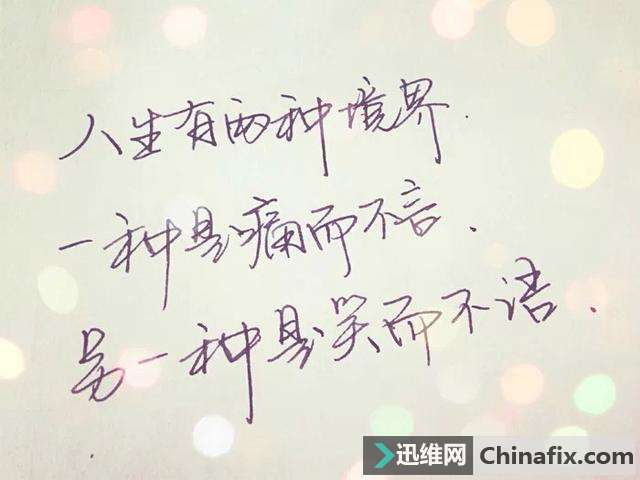 人生有两种境界.
一种是痛而不言.
另一种是笑而不语.
迅维网 Chinafix.com